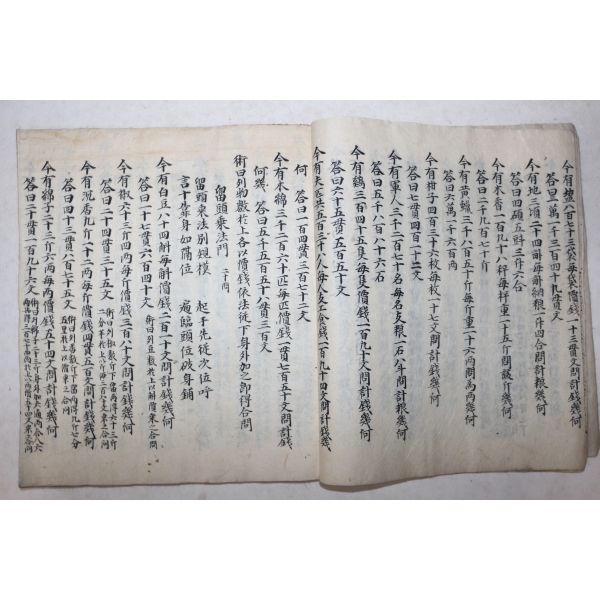 今有鹽八百七十三袋每袋價錢一十三貫文問計錢幾何
答曰一萬一千三百四十九貫文
今有地三頃二十四畝每畝納粮一升四合問計粮幾何
答曰四碩五㪷三升六合
今有木香一百九十八秤每秤重一十五斤問該斤幾何
答曰二千九百七十斤
今有黄蠟三千八百五十斤每斤重一十六兩問為兩幾何
答曰六萬一千六百兩
今有柑子四百三十六枚每枚一十七文問計錢幾何
答曰七貫四百一十二文
今有軍人三千二百七十名每名支粮一石八斗問計粮幾何
答曰五千八百八十六石
今有鷄三百四十五隻每隻價錢一百九十文問計錢幾何
答曰六十五貫五百五十文
今有夫匠共五百三十八人每人支工食錢一百九十四文問計錢幾
何 答曰一百四貫三百七十二文
今有木綿三千二百六十匹每匹價錢一貫七百五十文問計錢
幾何 答曰五千五百五十八貫三百文
術曰列物數於上各以價錢依法從下身外加之即得合問
留頭乘法門 二十問
留頭乘法別規模 起手先從次位呼
言十靠身如隔位 遍臨頭位破身鋪
今有白豆八十四斛每斛價錢二百一十文問計錢幾何
答曰一十七貫六百四十文 術曰列豆數於上以斛價乘之合問
今有椒六十三斤四兩每斤價錢三百八十文問計錢幾何
答曰二十四貫三十五文
今有沉香九斤一十二兩每斤價錢四貫五百文問計錢幾何
答曰四十三貫八百七十五文
今有綿子二十三斤六兩每兩價錢五十四文問計錢幾何
答曰二十貫一百九十六文